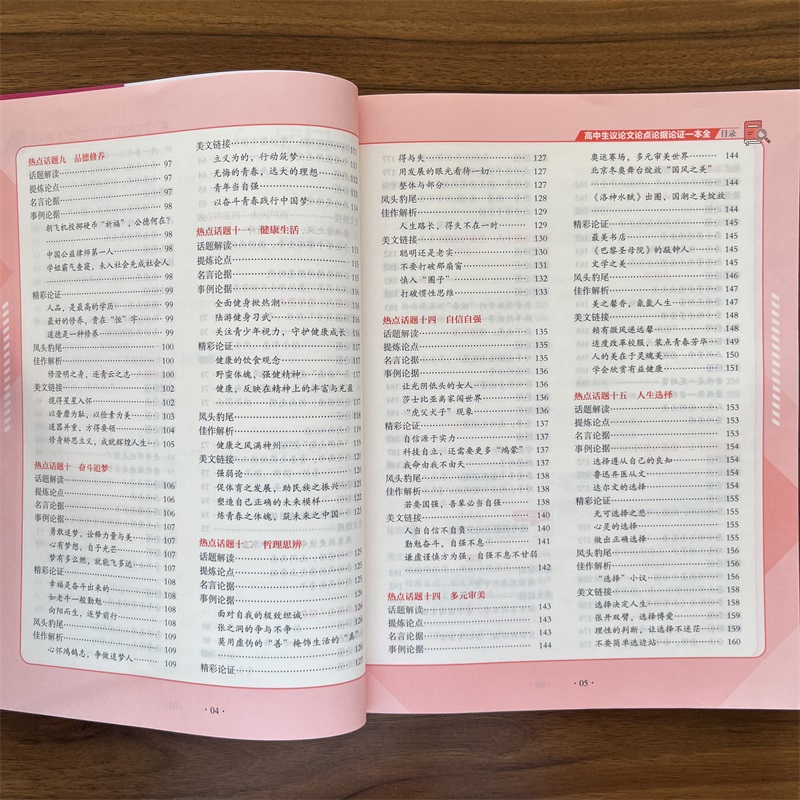 热点话题九 品德修养
话题解读 97
提炼论点 97
名言论据 97
事例论据 98
朝飞机投掷硬币“祈福”，公德何在？
98
中国公益律师第一人 98
学姐霸气查寝，未入社会先成社会人
98
精彩论证 99
人品，是最高的学历 99
最好的修养，贵在“恒”字 99
道德是一种修养 99
凤头豹尾 100
佳作解析 100
修澄明之身，逐青云之志 100
美文链接 102
揽得星星入怀 102
以奢靡为耻，以俭素为美 103
道器并重，方得要领 104
修身矫思立义，成就辉煌人生 105
热点话题十 奋斗追梦
话题解读 106
提炼论点 106
名言论据 107
事例论据 107
勇敢追梦，诠释力量与美 107
心有梦想，自于光芒 107
梦有多么燃，就能飞多远 107
精彩论证 108
幸福是奋斗出来的 108
如老牛一般勤勉 108
向阳而生，逐梦前行 108
凤头豹尾 108
佳作解析 109
心怀鸿鹄志，争做追梦人 109
美文链接 111
立义为的，行动筑梦 111
无悔的青春，远大的理想 112
青年当自强 113
以奋斗青春践行中国梦 114
热点话题十一 健康生活
话题解读 115
提炼论点 115
名言论据 115
事例论据 116
全面健身掀热潮
陆游健身习式
关注青少年视力，守护健康成长
精彩论证
健康的饮食观念
野蛮体魄，强健精神
健康，反映在精神上的丰富与充盈
凤头豹尾
佳作解析
健康之风满神州
美文链接
强弱论
促体育之发展，助民族之振兴
塑造自己正确的未来模样
炼青春之体魄，筑未来之中国
热点话题十二 哲理思辨
话题解读 125
提炼论点 125
名言论据 125
事例论据 126
面对自我的极致坦诚 126
张之洞的争与不争 126
莫用虚伪的“善”掩饰生活的“真”
126
精彩论证 127
· 04 ·
高中生议论文论点论据论证一本全 目录
得与失 127
用发展的眼光看待一切 127
整体与部分 127
凤头豹尾 128
佳作解析 129
人生路长，得失不在一时 129
美文链接 130
聪明还是老实 130
不要打破那扇窗 131
慎入“圈子” 132
打破惯性思维 133
热点话题十四 自信自强
话题解读 135
提炼论点 135
名言论据 135
事例论据 136
让光阴低头的女人 136
莎士比亚离家闯世界 136
“虎父犬子”现象 136
精彩论证 137
自信源于实力 137
科技自主，还需要更多“鸿蒙” 137
我命由我不由天 137
凤头豹尾 138
佳作解析 138
若要国强，吾辈必当自强 138
美文链接 140
人当自信不自负 140
勤勉奋斗，自强不息 141
谦虚谨慎方为强，自强不息不甘弱
142
热点话题十四 多元审美
话题解读 143
提炼论点 143
名言论据 143
事例论据 144
奥运赛场，多元审美世界 144
北京冬奥舞台绽放“国风之美”
144
《洛神水赋》出圈，国潮之美绽放
144
精彩论证 145
最美书店 145
《巴黎圣母院》的敲钟人 145
文学之美 145
凤头豹尾 146
佳作解析 147
美之馨香，氤氲人生 147
美文链接 148
赖有微风递远馨 148
适度改革校服，装点青春芳华 149
人的美在于灵魂美 150
学会欣赏有益健康 151
热点话题十五 人生选择
话题解读 153
提炼论点 153
名言论据 153
事例论据 154
选择遵从自己的良知 154
鲁迅弃医从文 154
达尔文的选择 154
精彩论证 155
无可选择之悲 155
心灵的选择 155
做出正确选择 155
凤头豹尾 156
佳作解析 156
“选择”小议 156
美文链接 158
选择决定人生 158
张开双臂，选择博爱 159
理性的判断，让选择不迷茫 159
不要简单选边站 160
· 05 ·